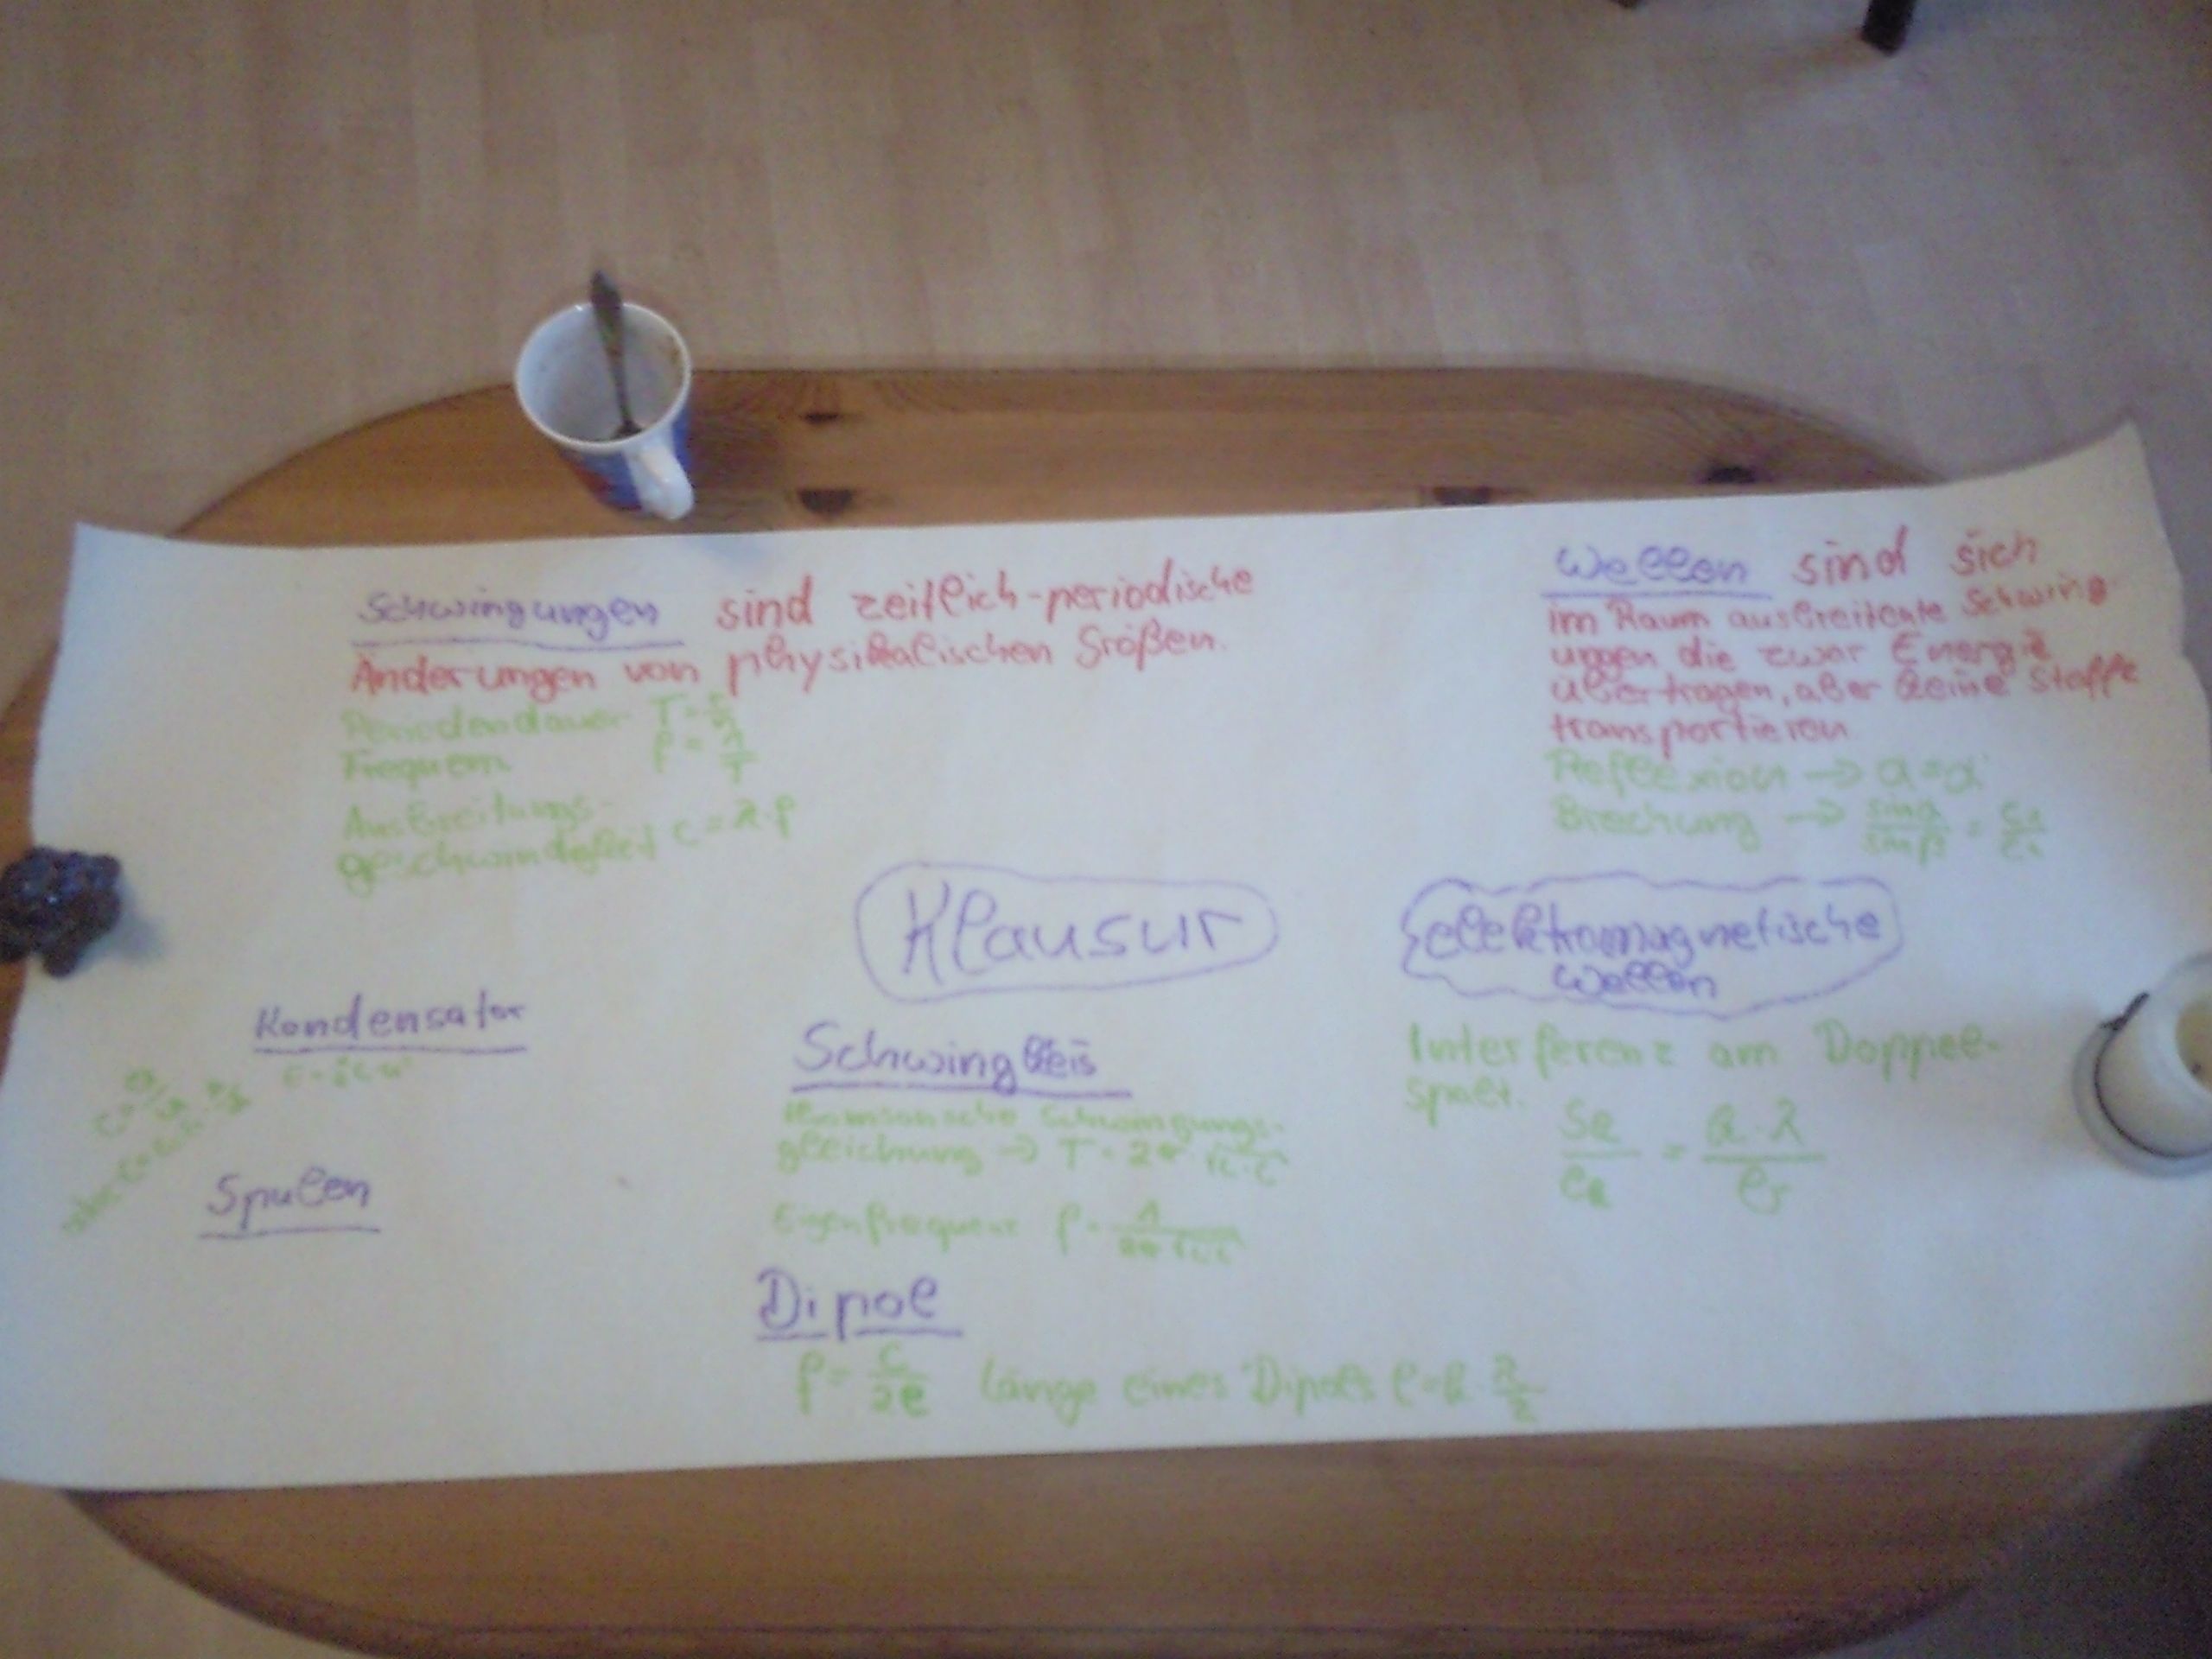 Schwingungen sind zeitlich-periodische
Änderungen von physikalischen Größen.
Periodendauer T =
Frequenz f = 1/T
Ausbreitungs-
geschwindigkeit c = λ · f
Wellen sind sich
im Raum ausbreitente Schwing-
ungen die zwar Energie
übertragen, aber keine Stoffe
transportieren
Reflexion → α = α'
Brechung → sinα/sinβ =
Klausur
elektromagnetische
Wellen
Kondensator
Spulen
Schwingkeis
Schwingungs-
gleichung → T = 2π ·
Eigenfrequenz f =
Dipol
f = c/2l Länge eines Dipols l = k · λ/2
Interferenz am Doppel-
spalt.
= k · λ